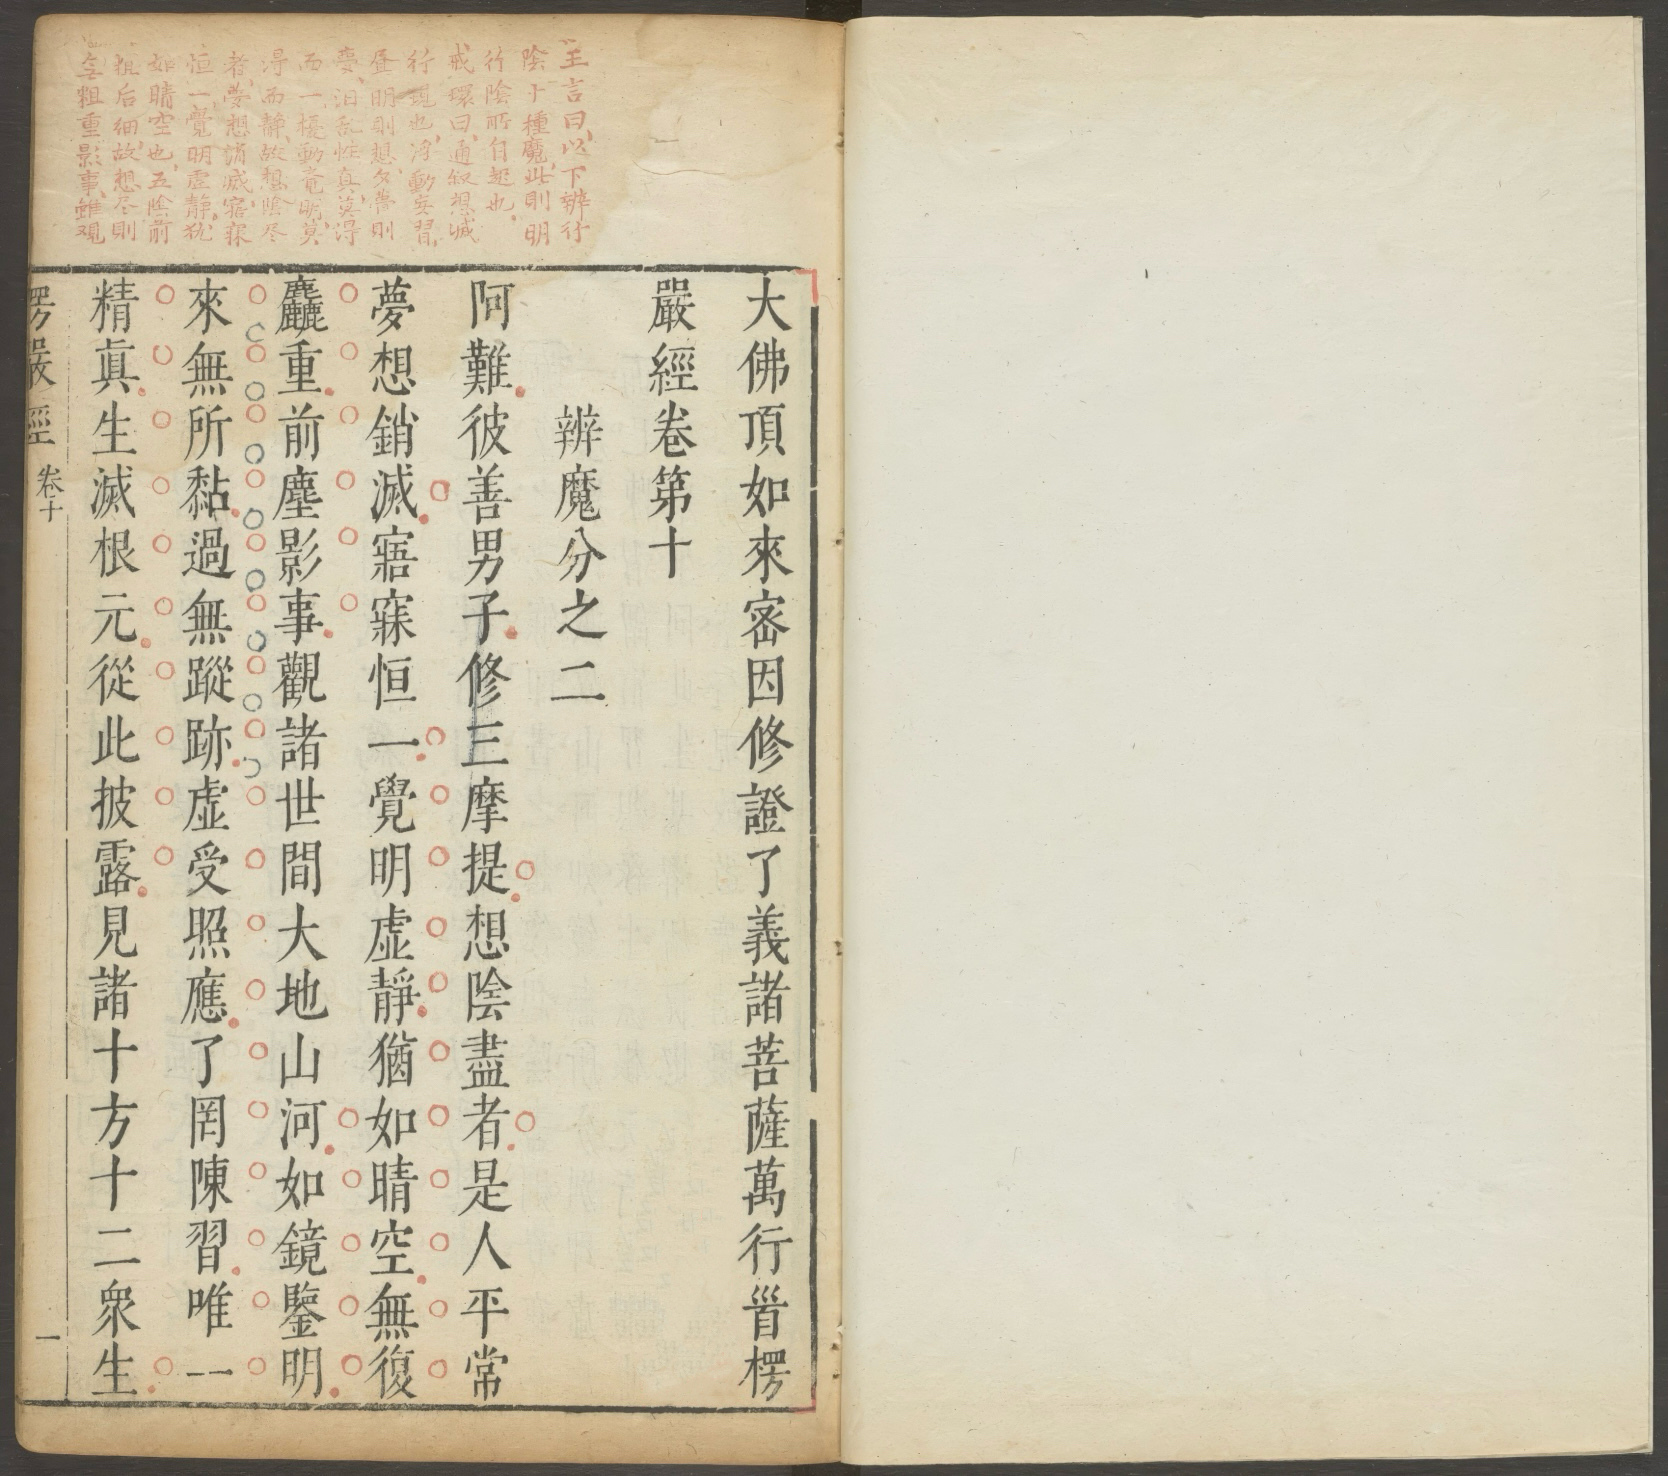 王言曰以下辨行
陰十種魔此則明
行陰所自起也
戒環曰通叙想滅
行現也浮動妄習
晝明則想夕夢則
夢汨乱性真莫得
而一擾動竟明莫
淂而靜故想陰尽
者夢想銷滅寤寐
恒一覺明虛靜犹
如晴空也五陰前
粗后細故想尽則
無粗重影事雖观
大佛頂如來密因修證了義諸菩薩萬行首楞
嚴經卷第十
辨魔分之二
阿難彼善男子修三摩提想陰盡者是人平常
夢想銷滅寤寐恒一覺明虛靜猶如晴空無復
麤重前塵影事觀諸世間大地山河如鏡鑒明
來無所黏過無蹤跡虛受照應了罔陳習唯一
精真生滅根元從此披露見諸十方十二衆生
楞嚴經 卷十 一